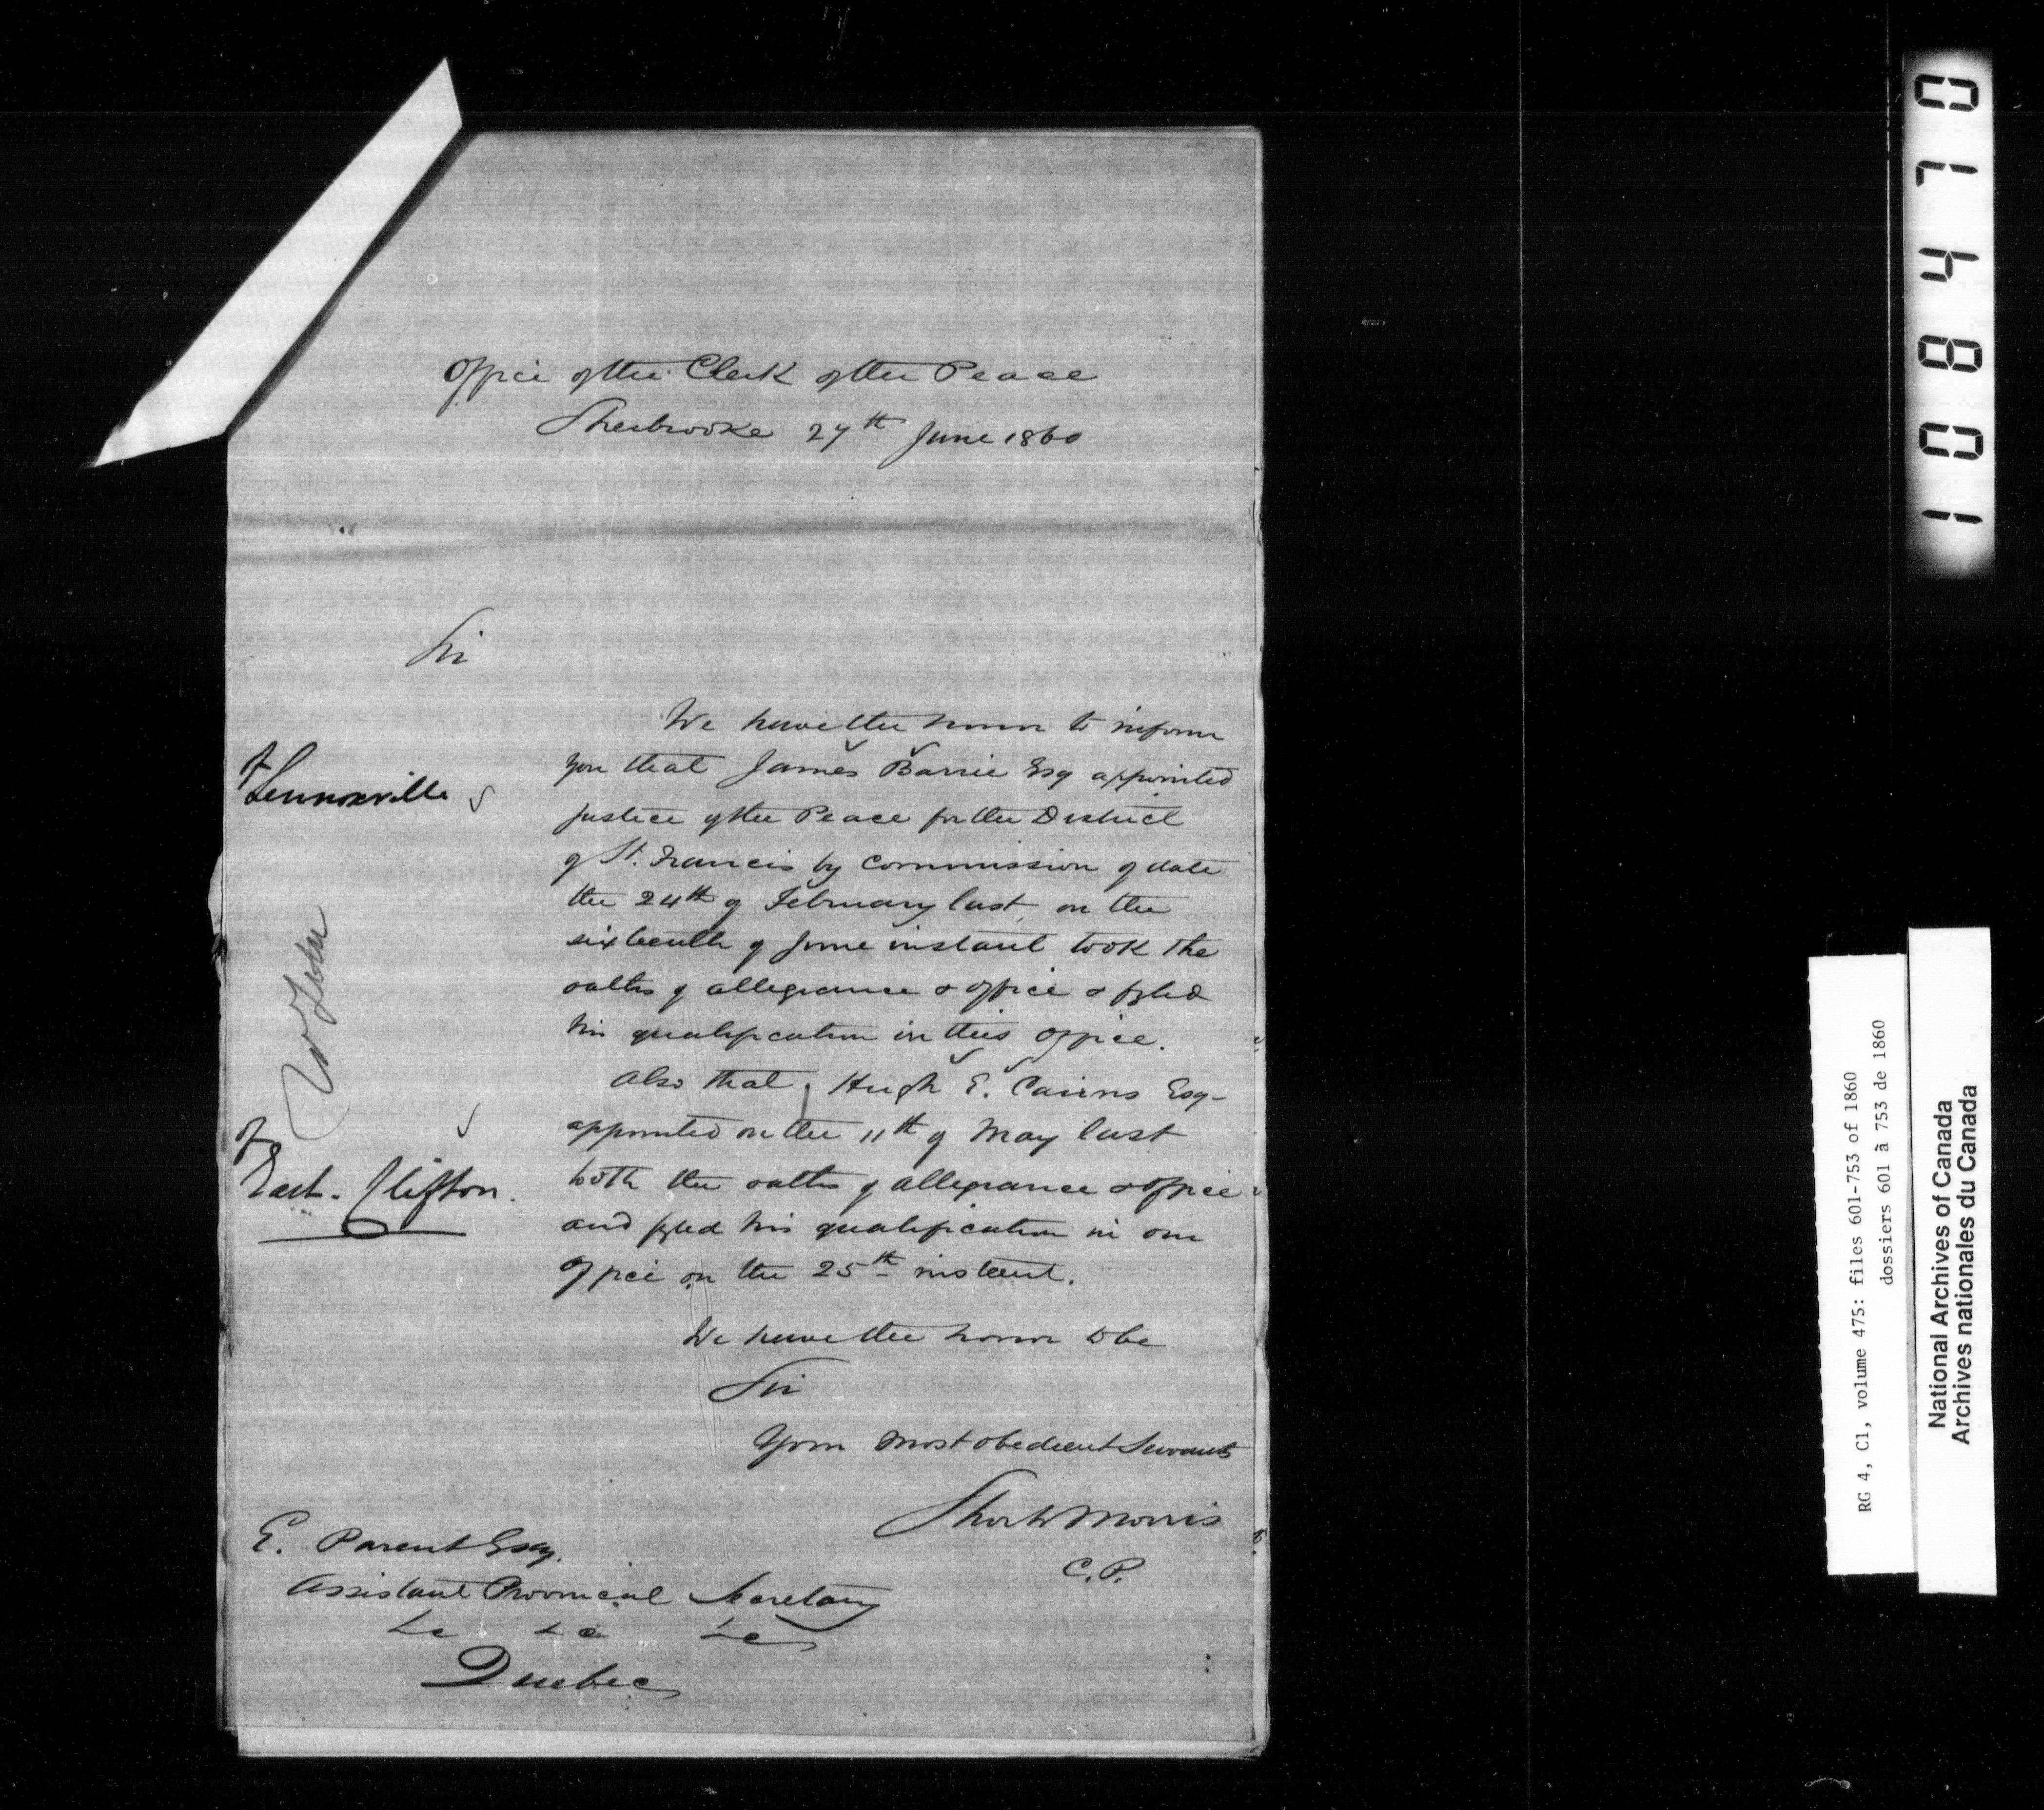 Office of the Clerk of the Peace
Sherbrooke 27th June 1860
Sir
We have the honor to inform
you that James Barrie Esq appointed
Justice of the Peace for the District
of St. Francis by Commission of date
the 24th of February last, on the
sixteenth of June instant took the
oaths of allegiance & office & fyled
his qualification in this office.
Also that Hugh E. Cairns Esq-
appointed on the 11th of May last
took the oaths of allegiance & office
and fyled his qualification in our
office on the 25th instant.
We have the honor to be
Sir
Your most obedient Servants
Short & Morris
C.P.
E. Parent Esq.
Assistant Provincial Secretary
&c &c &c
Quebec
of
Lennoxville
of
East-Clifton.
108470
RG 4, C1, volume 475: files 601-753 of 1860
dossiers 601 à 753 de 1860
National Archives of Canada
Archives nationales du Canada